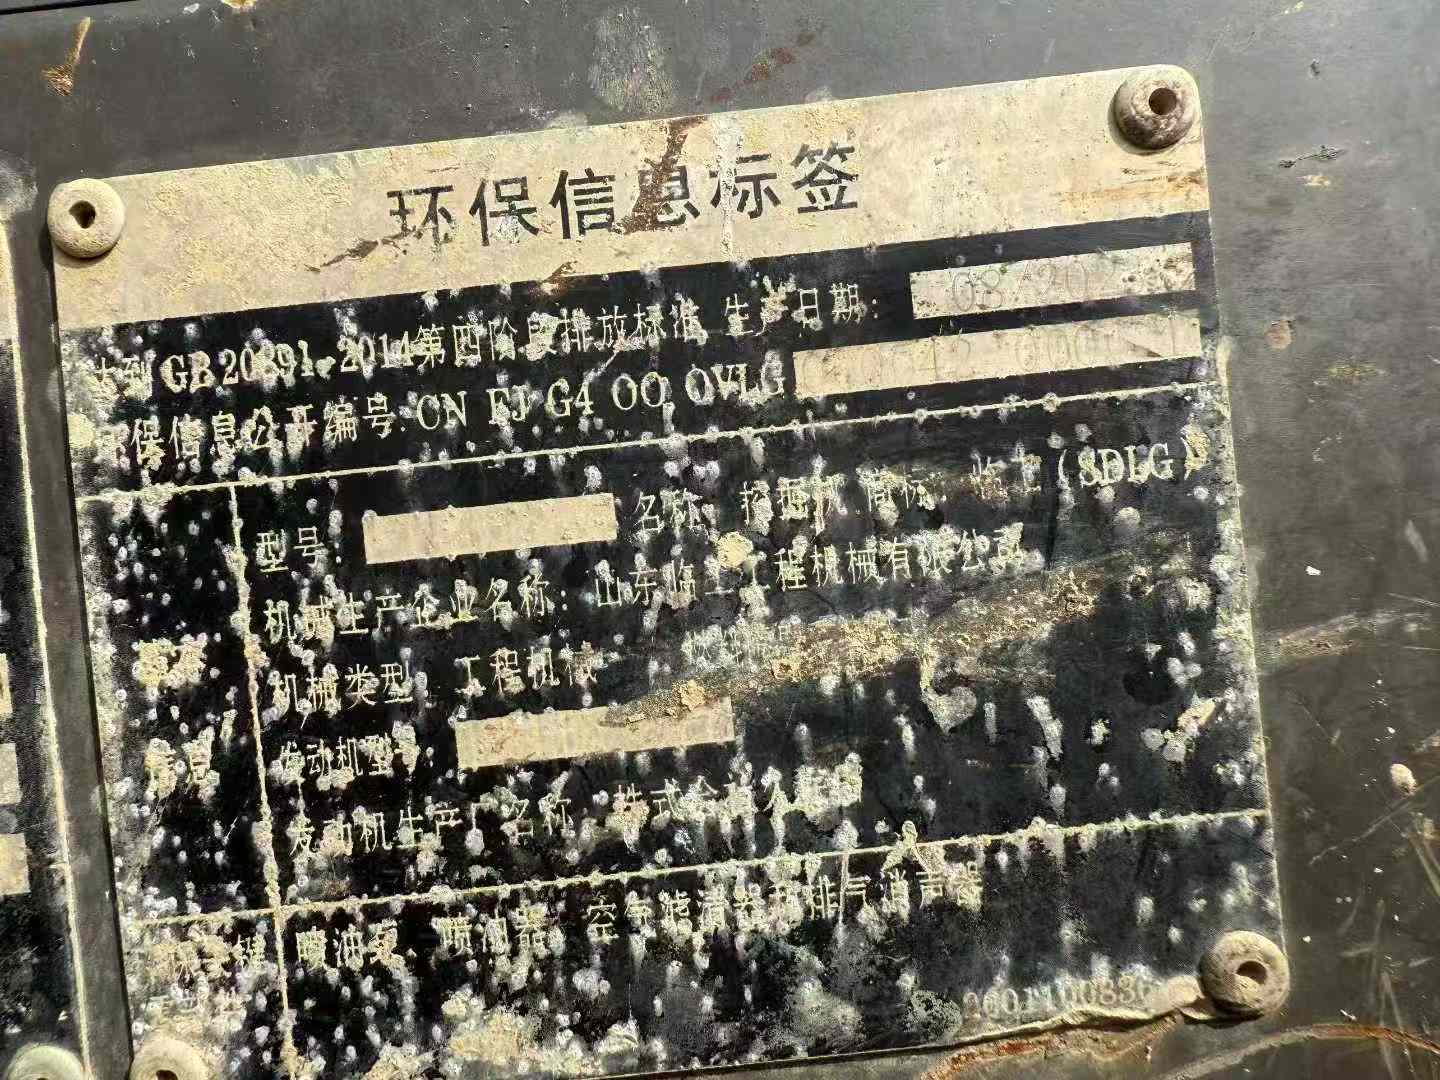 环保信息标签
达到GB 20891-2014第四阶段排放标准 生产日期: 08/202
环保信息公开编号:CN FJ G4 00 0VLG
型号: 名称: 挖掘机 商标: 临工(SDLG)
机械生产企业名称: 山东临工工程机械有限公司
机械类型: 工程机械
信息
发动机型号:
发动机生产厂名称: 株式会社
关键 喷油泵、喷油器、空气滤清器和排气消声器